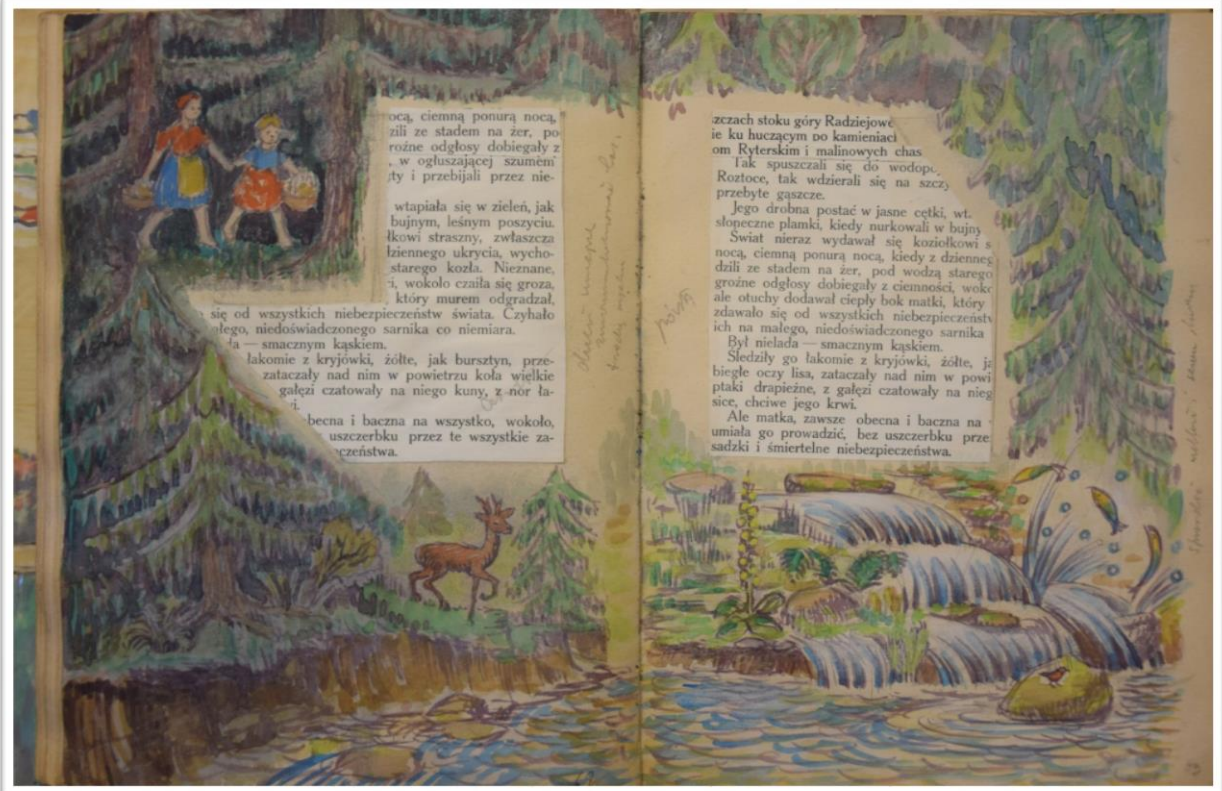 ocą, ciemną ponurą nocą,
zili ze stadem na żer, po
roźne odgłosy dobiegały z
, w ogłuszającej szumem
ty i przebijali przez nie-
wtapiała się w zieleń, jak
bujnym, leśnym poszyciu.
łkowi straszny, zwłaszcza
dziennego ukrycia, wycho-
starego kozła. Nieznane,
i, wokoło czaiła się groza,
który murem odgradzał,
się od wszystkich niebezpieczeństw świata. Czyhało
ałego, niedoświadczonego sarnika co niemiara.
da — smacznym kąskiem.
łakomie z kryjówki, żółte, jak bursztyn, prze-
zataczały nad nim w powietrzu koła wielkie
gałęzi czatowały na niego kuny, z nor ła-
wi.
becna i baczna na wszystko, wokoło,
uszczerbku przez te wszystkie za-
czeństwa.
zczach stoku góry Radziejowe
ie ku huczącym po kamieniaci
om Ryterskim i malinowych chas
Tak spuszczali się do wodopo
Roztoce, tak wdzierali się na szczy
przebyte gąszcze.
Jego drobna postać w jasne cętki, wt.
słoneczne plamki, kiedy nurkowali w bujny
Świat nieraz wydawał się koziołkowi s
nocą, ciemną ponurą nocą, kiedy z dzienneg
dzili ze stadem na żer, pod wodzą starego
groźne odgłosy dobiegały z ciemności, woko
ale otuchy dodawał ciepły bok matki, który
zdawało się od wszystkich niebezpieczeństw
ich na małego, niedoświadczonego sarnika
Był nielada — smacznym kąskiem.
Śledziły go łakomie z kryjówki, żółte, ja
biegłe oczy lisa, zataczały nad nim w powi
ptaki drapieżne, z gałęzi czatowały na nieg
sice, chciwe jego krwi.
Ale matka, zawsze obecna i baczna na
umiała go prowadzić, bez uszczerbku prze
sadzki i śmiertelne niebezpieczeństwa.